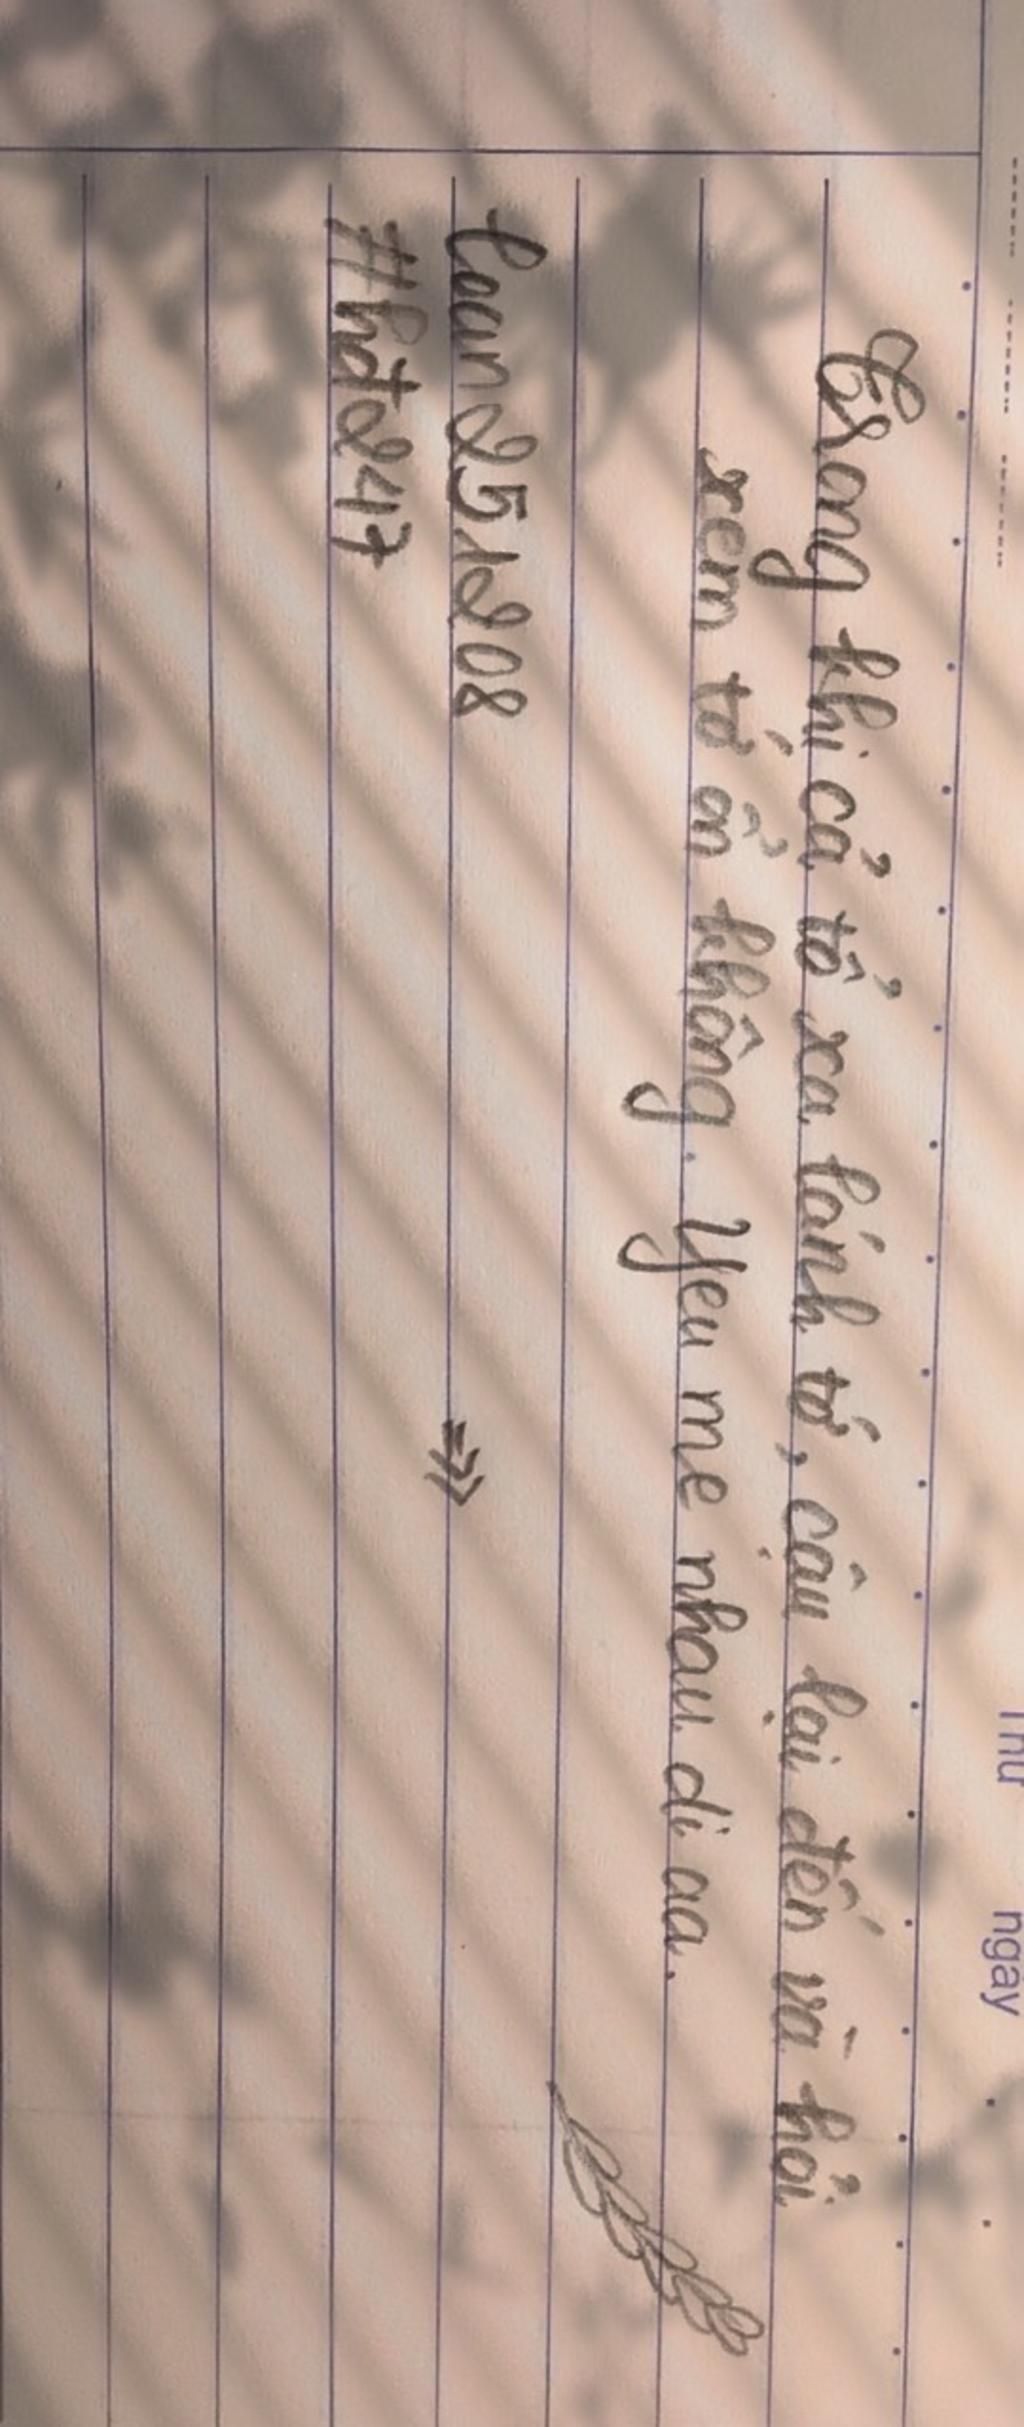 Thứ ngày
Trong khi cả tổ xa lánh tớ, cậu lại đến và hỏi
xem tớ ổn không. Yeu me nhau di aa.
loan251208
#hđ247